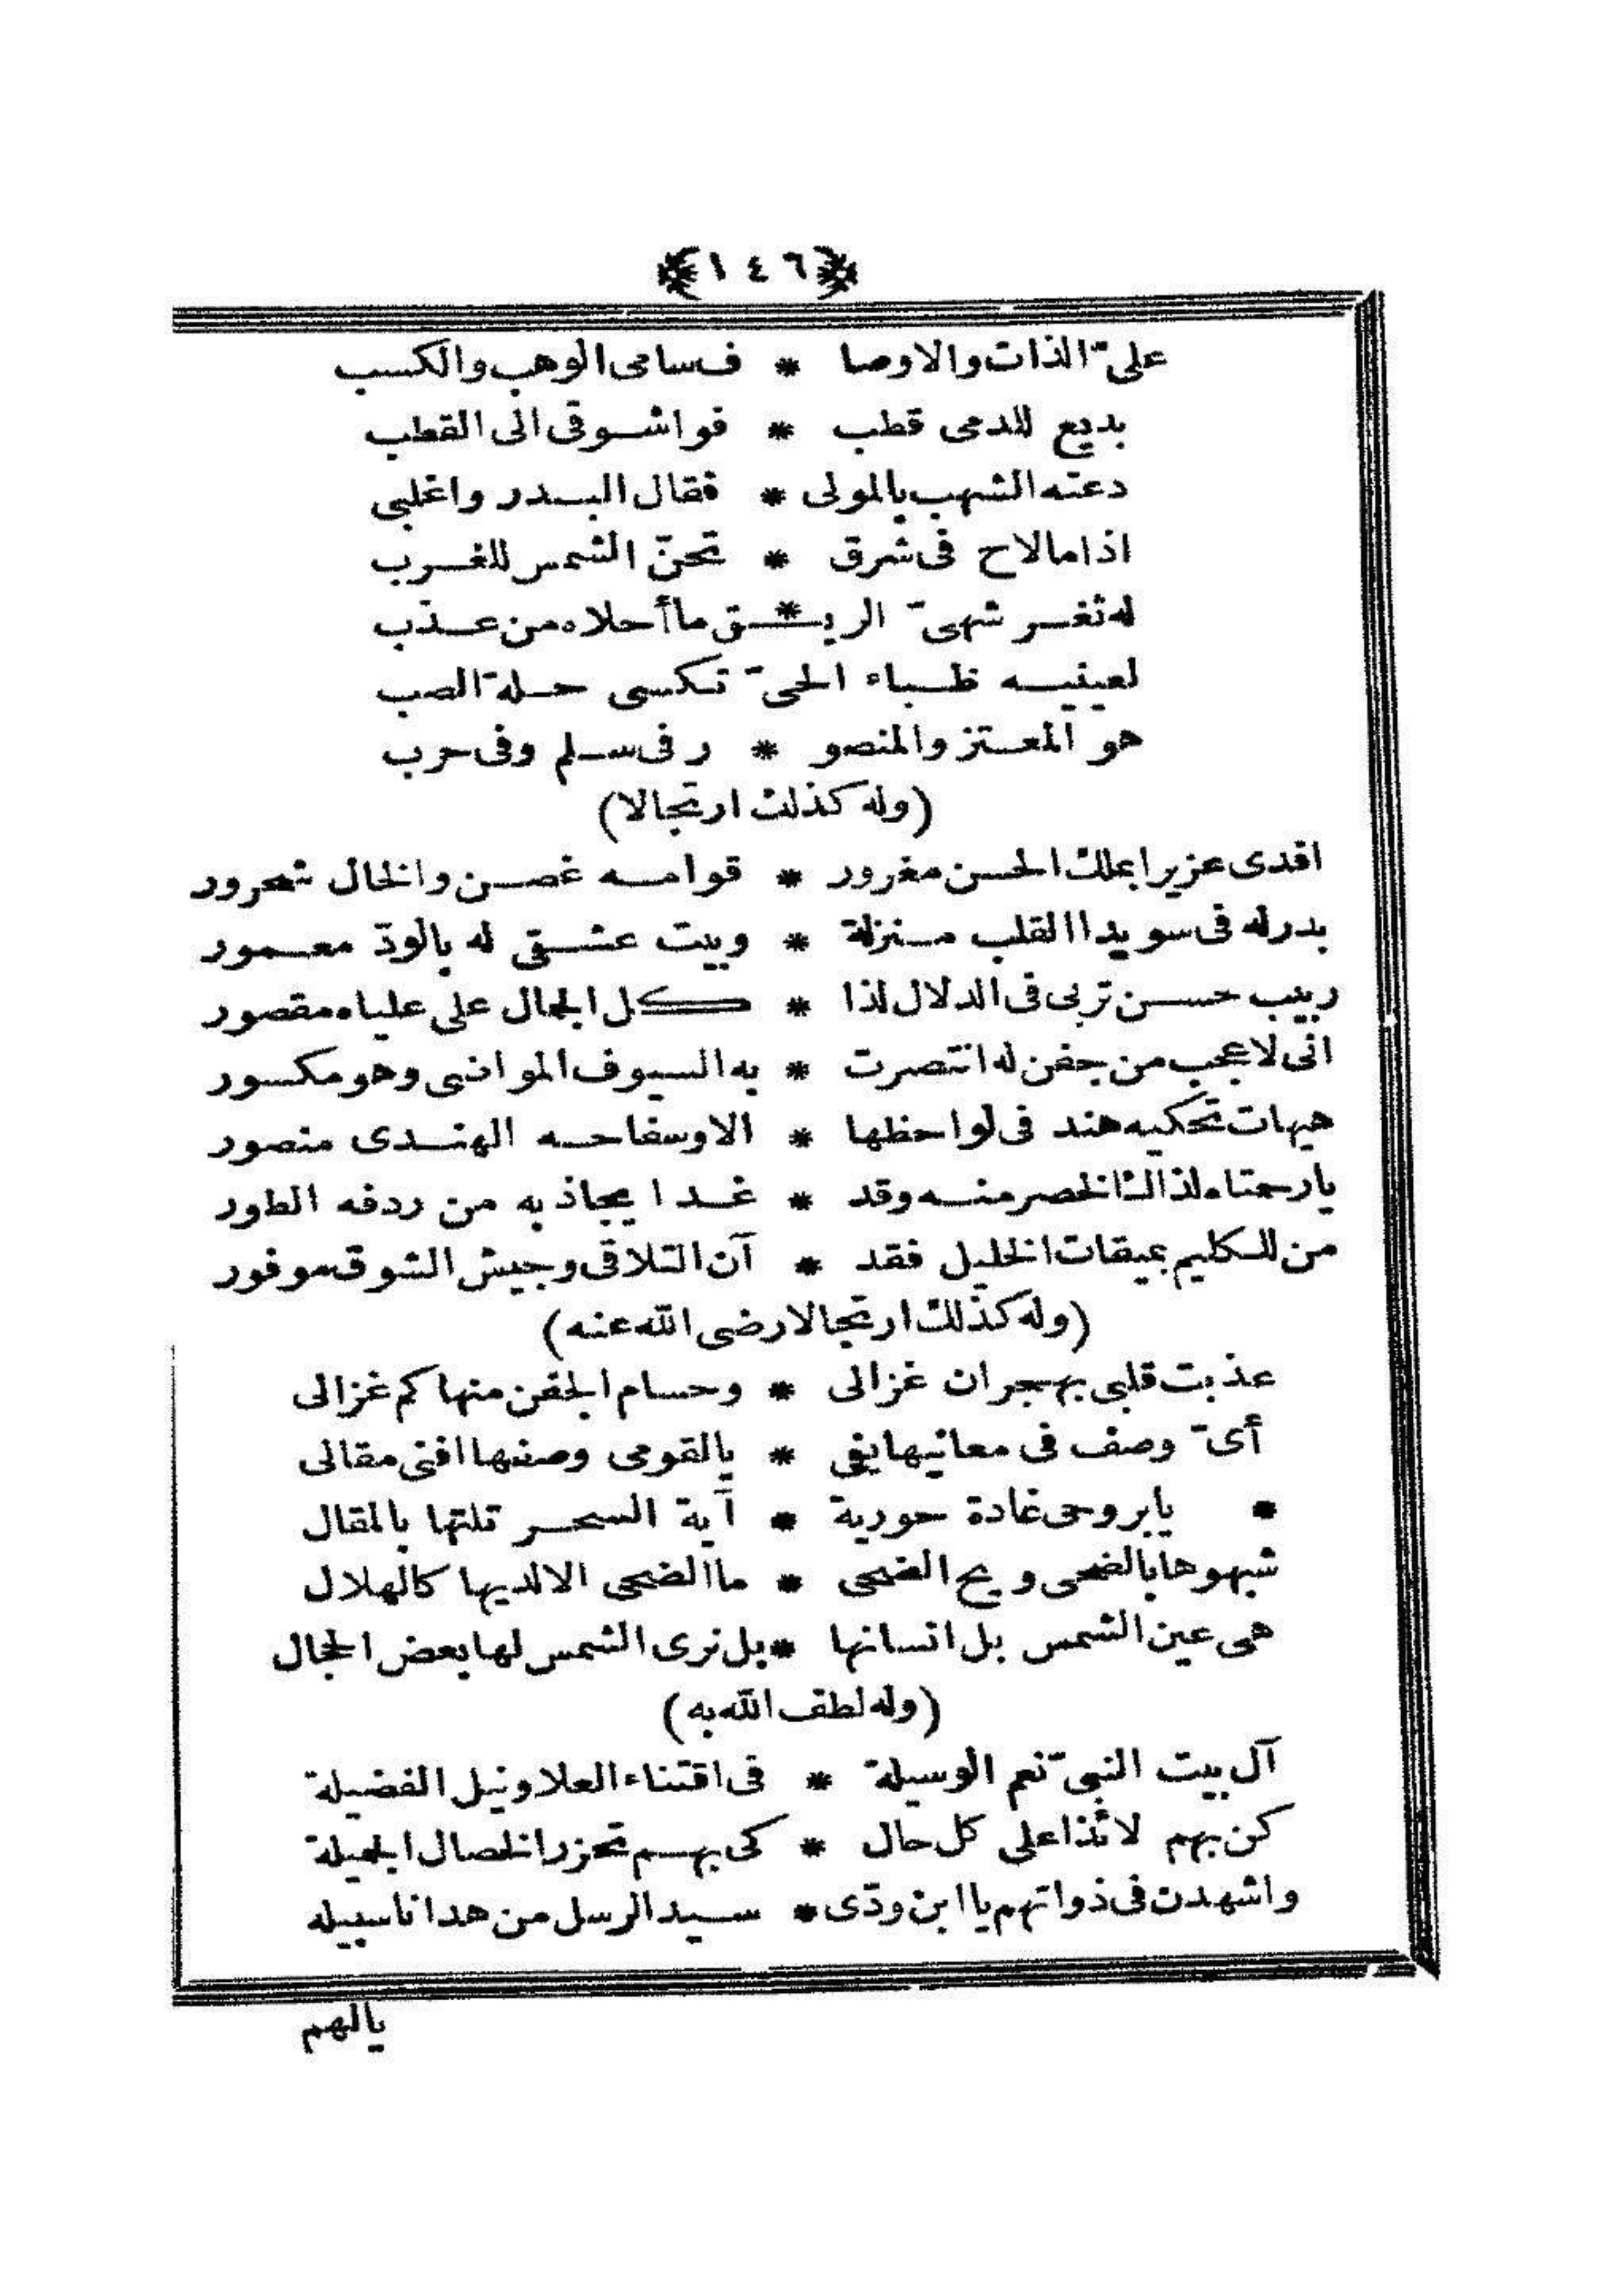 ﴿١٤٦﴾
علىّ الذات والاوصا * ف سامى الوهب والكسب
بديع للدمى قطب * فواشوقى الى القطب
دعته الشهب بالمولى * فقال البدر واغلبى
اذا ما لاح فى شرق * تحنّ الشمس للغرب
له ثغر شهىّ الريـ * ـق ما أحلاه من عذب
لعينيه ظباء الحىّ تكسى حلة الصب
هو المعتز والمنصو * ر فى سلم وفى حرب
(وله كذلك ارتجالا)
افدى عزيرا بملك الحسن مغرور * قوامه غصن والخال شحرور
بدر له فى سويدا القلب منزلة * وبيت عشقى له بالودّ معمور
ربيب حسن تربى فى الدلال لذا * كل الجمال على علياه مقصور
انى لاعجب من جفن له انتصرت * به السيوف المواضى وهو مكسور
هيهات تحكيه هند فى لواحظها * الا وسفاحه الهندى منصور
يا رحمتاه لذاك الخصر منه وقد * غدا يجاذبه من ردفه الطور
من للكليم بميقات الخليل فقد * آن التلاقى وجيش الشوق موفور
(وله كذلك ارتجالا رضى الله عنه)
عذبت قلبى بهجران غزالى * وحسام الجفن منها كم غزالى
أىّ وصف فى معانيها يفى * يالقومى وصفها افنى مقالى
* يابروحى غادة حورية * آية السحر تلتها بالمقال
شبهوها بالضحى ويح الضحى * ما الضحى الا لديها كالهلال
هى عين الشمس بل انسانها * بل نرى الشمس لها بعض الجمال
(وله لطف الله به)
آل بيت النبىّ نعم الوسيلة * فى اقتناء العلا ونيل الفضيلة
كن بهم لائذا على كل حال * كى بهم تحزر الخصال الجميلة
واشهدن فى ذواتهم يا ابن ودّى * سيد الرسل من هدانا سبيله
يالهم